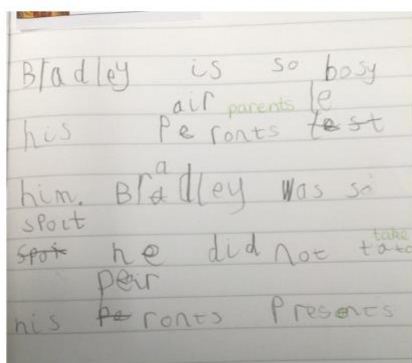 Bradley is so bosy
air parents le
his Peronts test
him. Bradley was so
a
sport
spot he did not tate
take
peir
his Pe ronts Presents